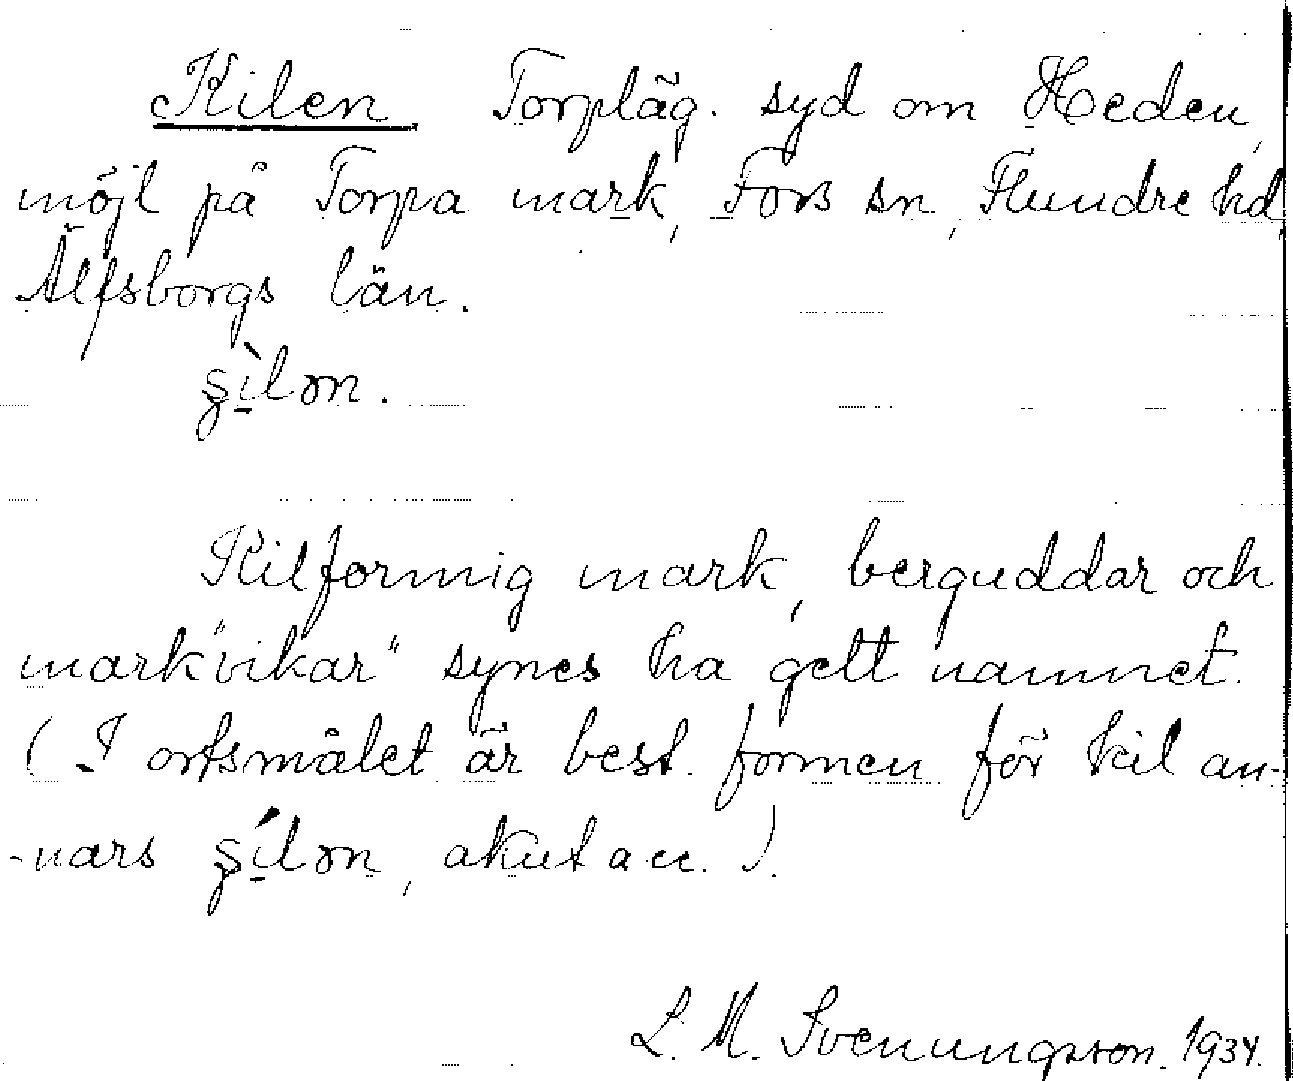 Kilen Torpläg. syd om Heden,
möjl på Torpa mark, Fors sn, Flundre hd,
Älfsborgs län.
ʂìlon.
Kilformig mark, berguddar och
mark"vikar" synes ha gett namnet.
(I ortsmålet är best. formen för kil an-
-nars ʂílon, akut acc.).
L. M. Svenungsson. 1934.